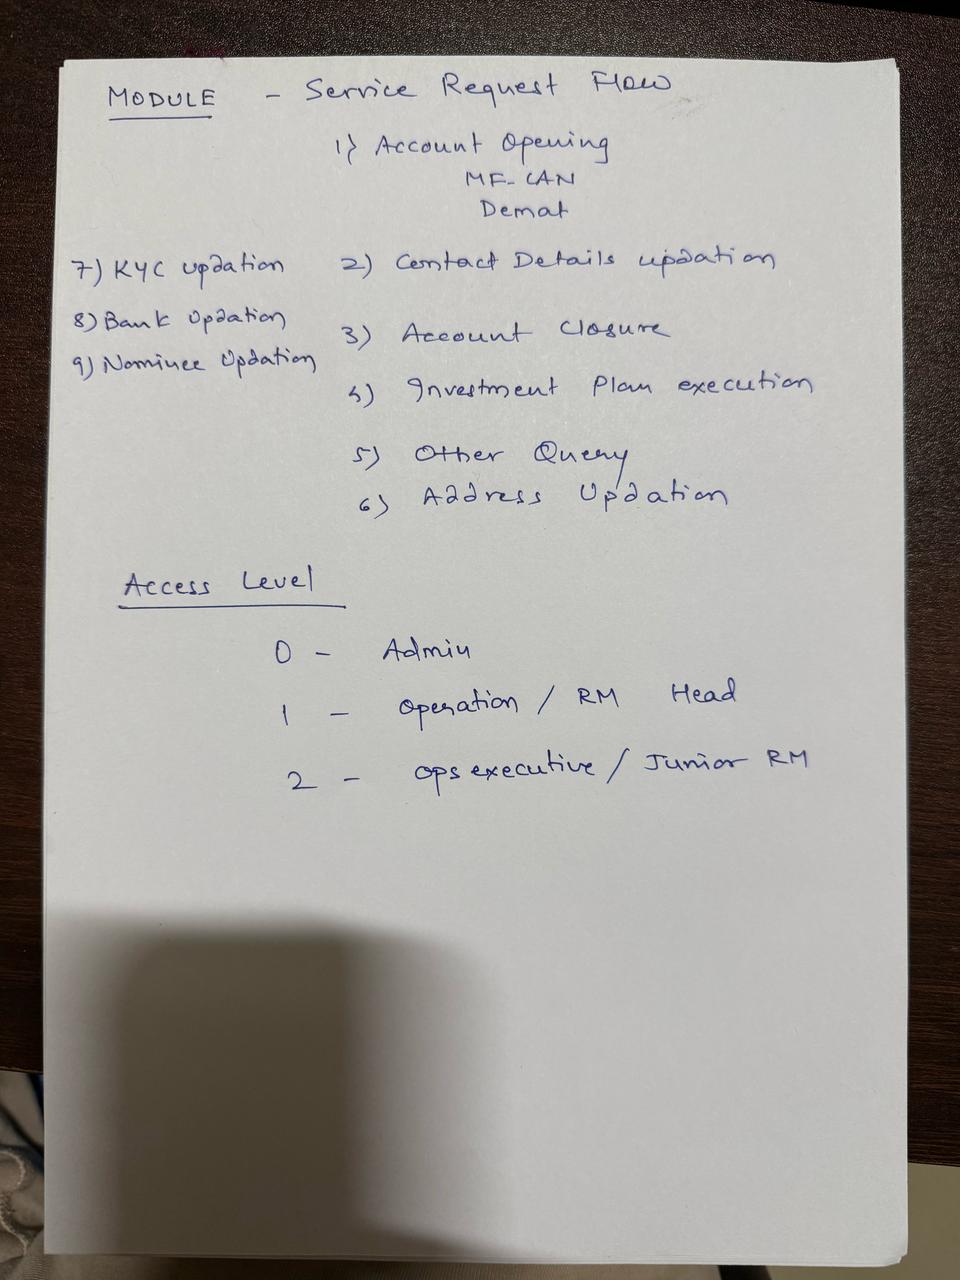 MODULE - Service Request Flow
1) Account Opening
MF-CAN
Demat
2) Contact Details updation
3) Account Closure
4) Investment Plan execution
5) Other Query
6) Address Updation
7) KYC updation
8) Bank Updation
9) Nominee Updation
Access Level
0 - Admin
1 - Operation / RM Head
2 - Ops executive / Junior RM